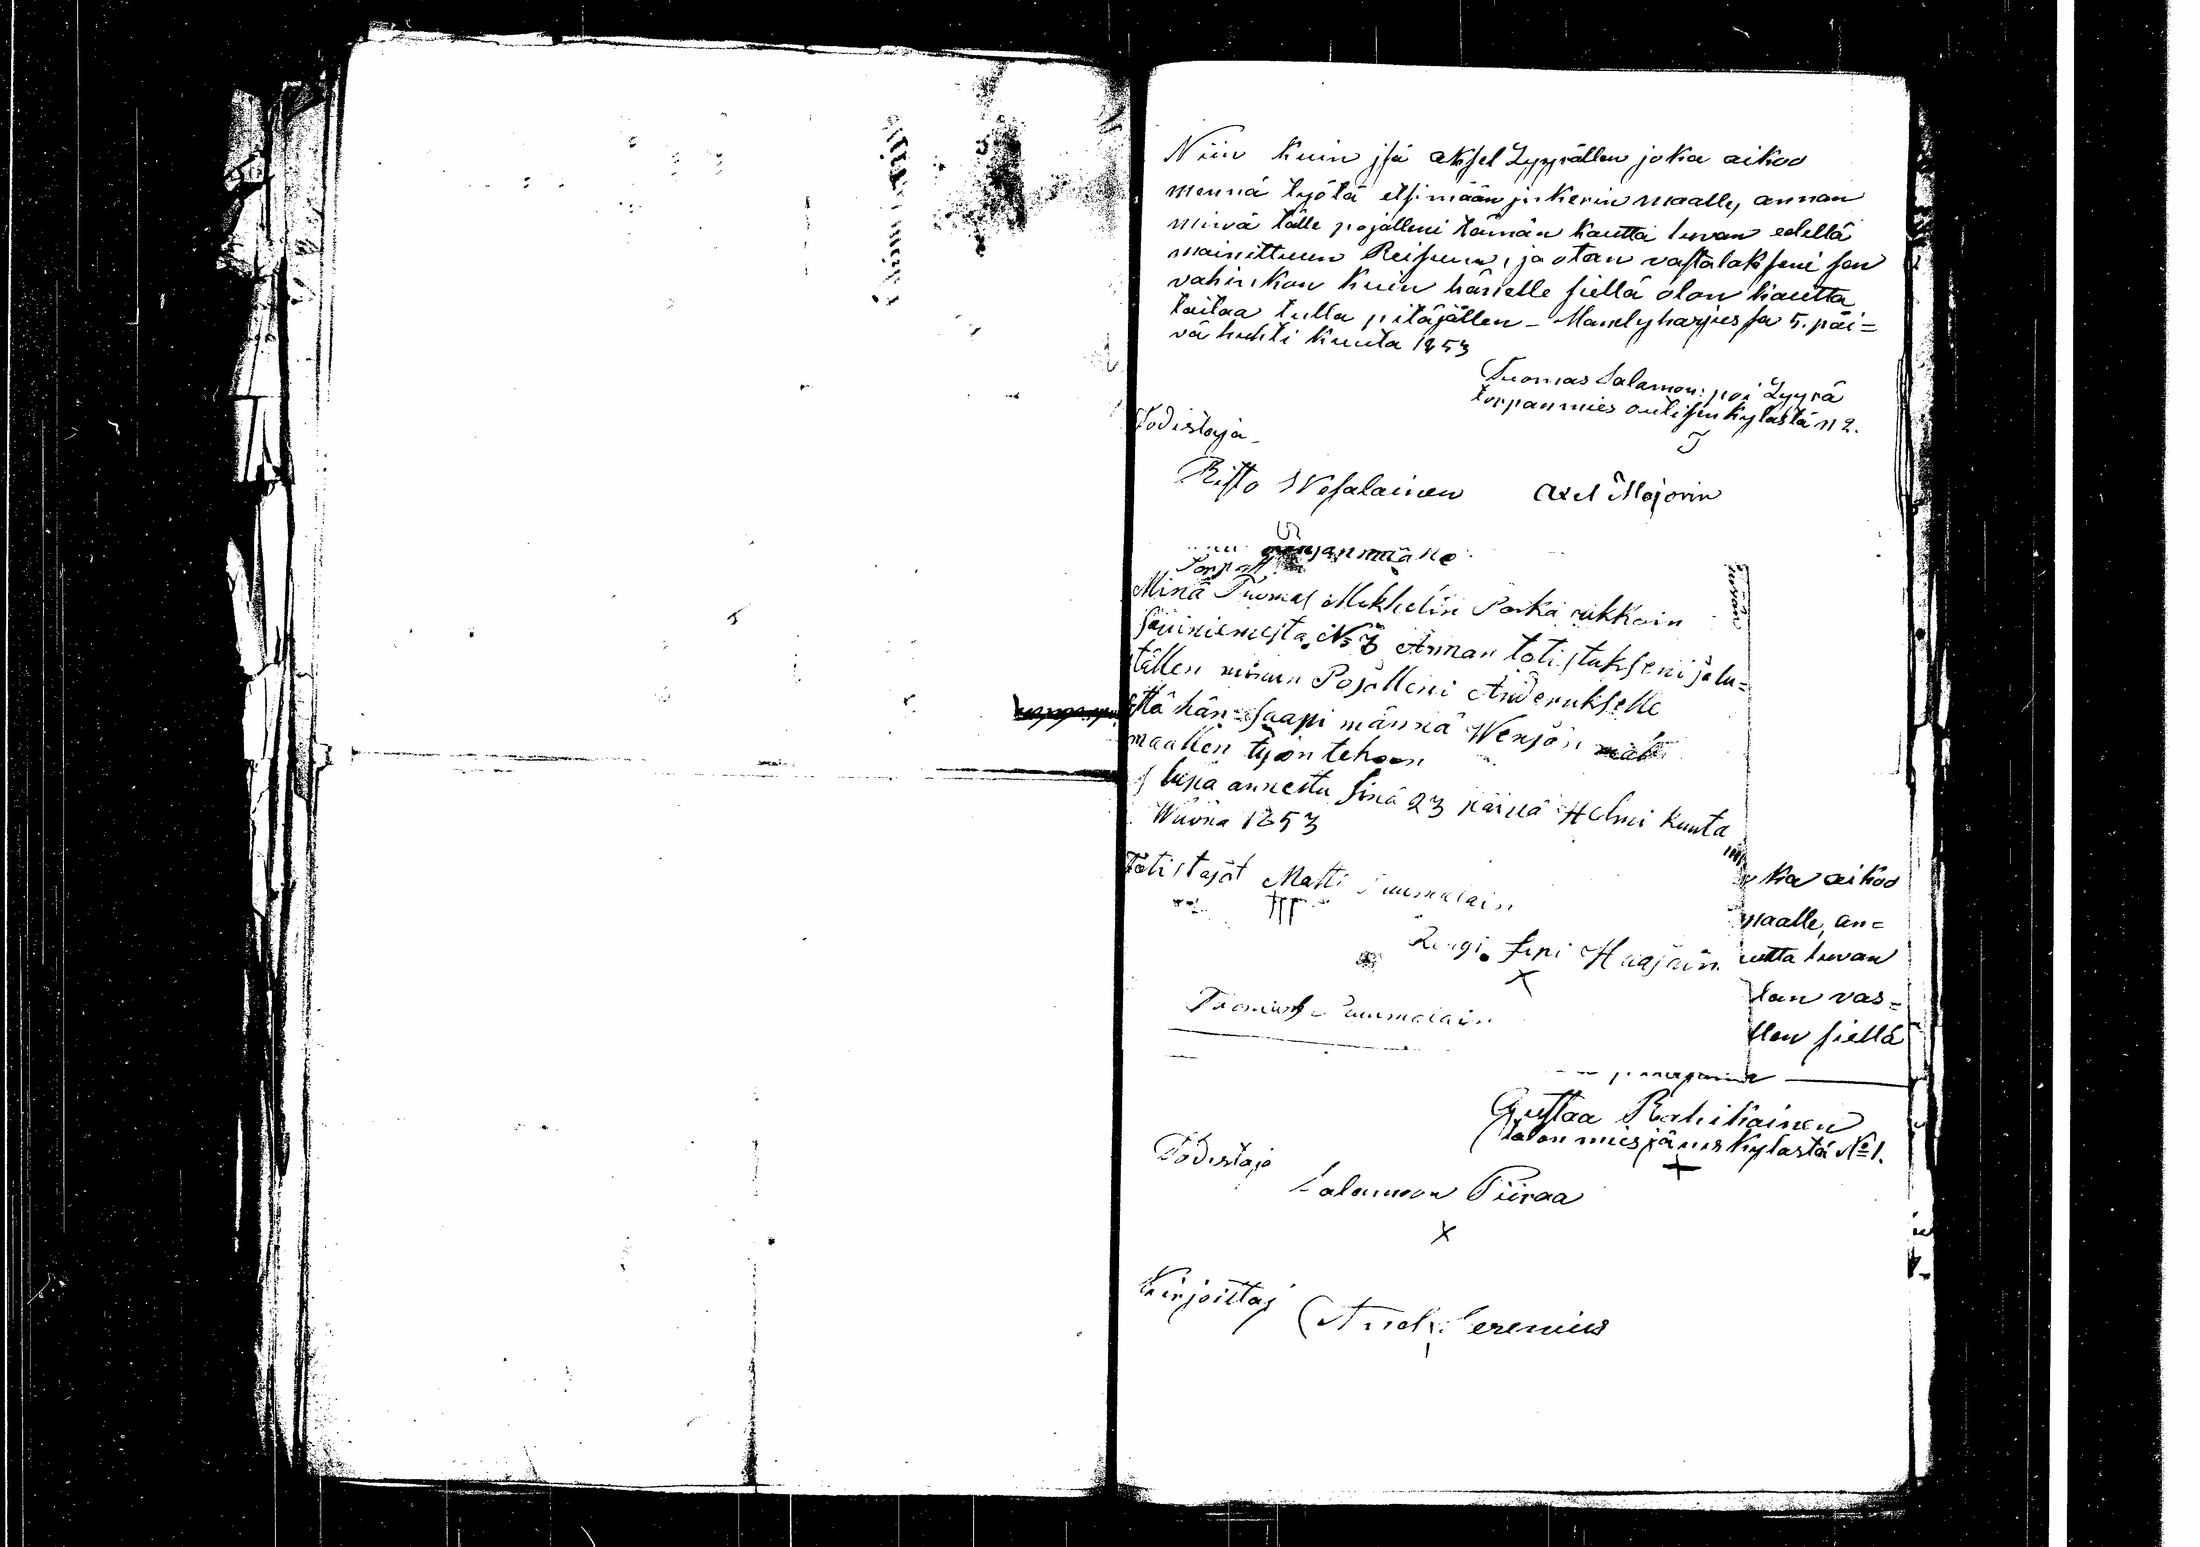 Niin kuin jsä aksel Lyyrällen joka aikoo
mennä työtä etsimään jnkerin maalle, annan
minä tälle pojalleni tämän kautta luvan edellä
mainittuun Reisuun, ja otan vastatakseni sen
vahinkon kuin hänelle siellä olon kautta
taitaa tulla pitäjällen - Mändyharjussa 5. päi=
vä huhti kuuta 1853
Tuomas Salamon: poi Lyyrä
torpanmies outisenkylästä N 2.
Todistaja
Risto Wesalainen Axel Majorin
Minä Tuomas Mikkelin Poika
No 3 Annan totistukseni ja lu=
tällen minun Pojalleni Anderukselle
että hän saapi männä Wenjän
maallen työn tehoon
lupa annettu sinä 23 päinä Helmi kuuta
Wuona 1853
Totistajat Matti Puumalain
Rengi Haajain
Tuomas Puumalain
ka aikoo
maalle, an=
utta luvan
tan vas=
llen siellä
Gustaa Rahikainen
talon mies kylästä No 1.
Todistaja
Salamon Piiraa
Kirjoittaj